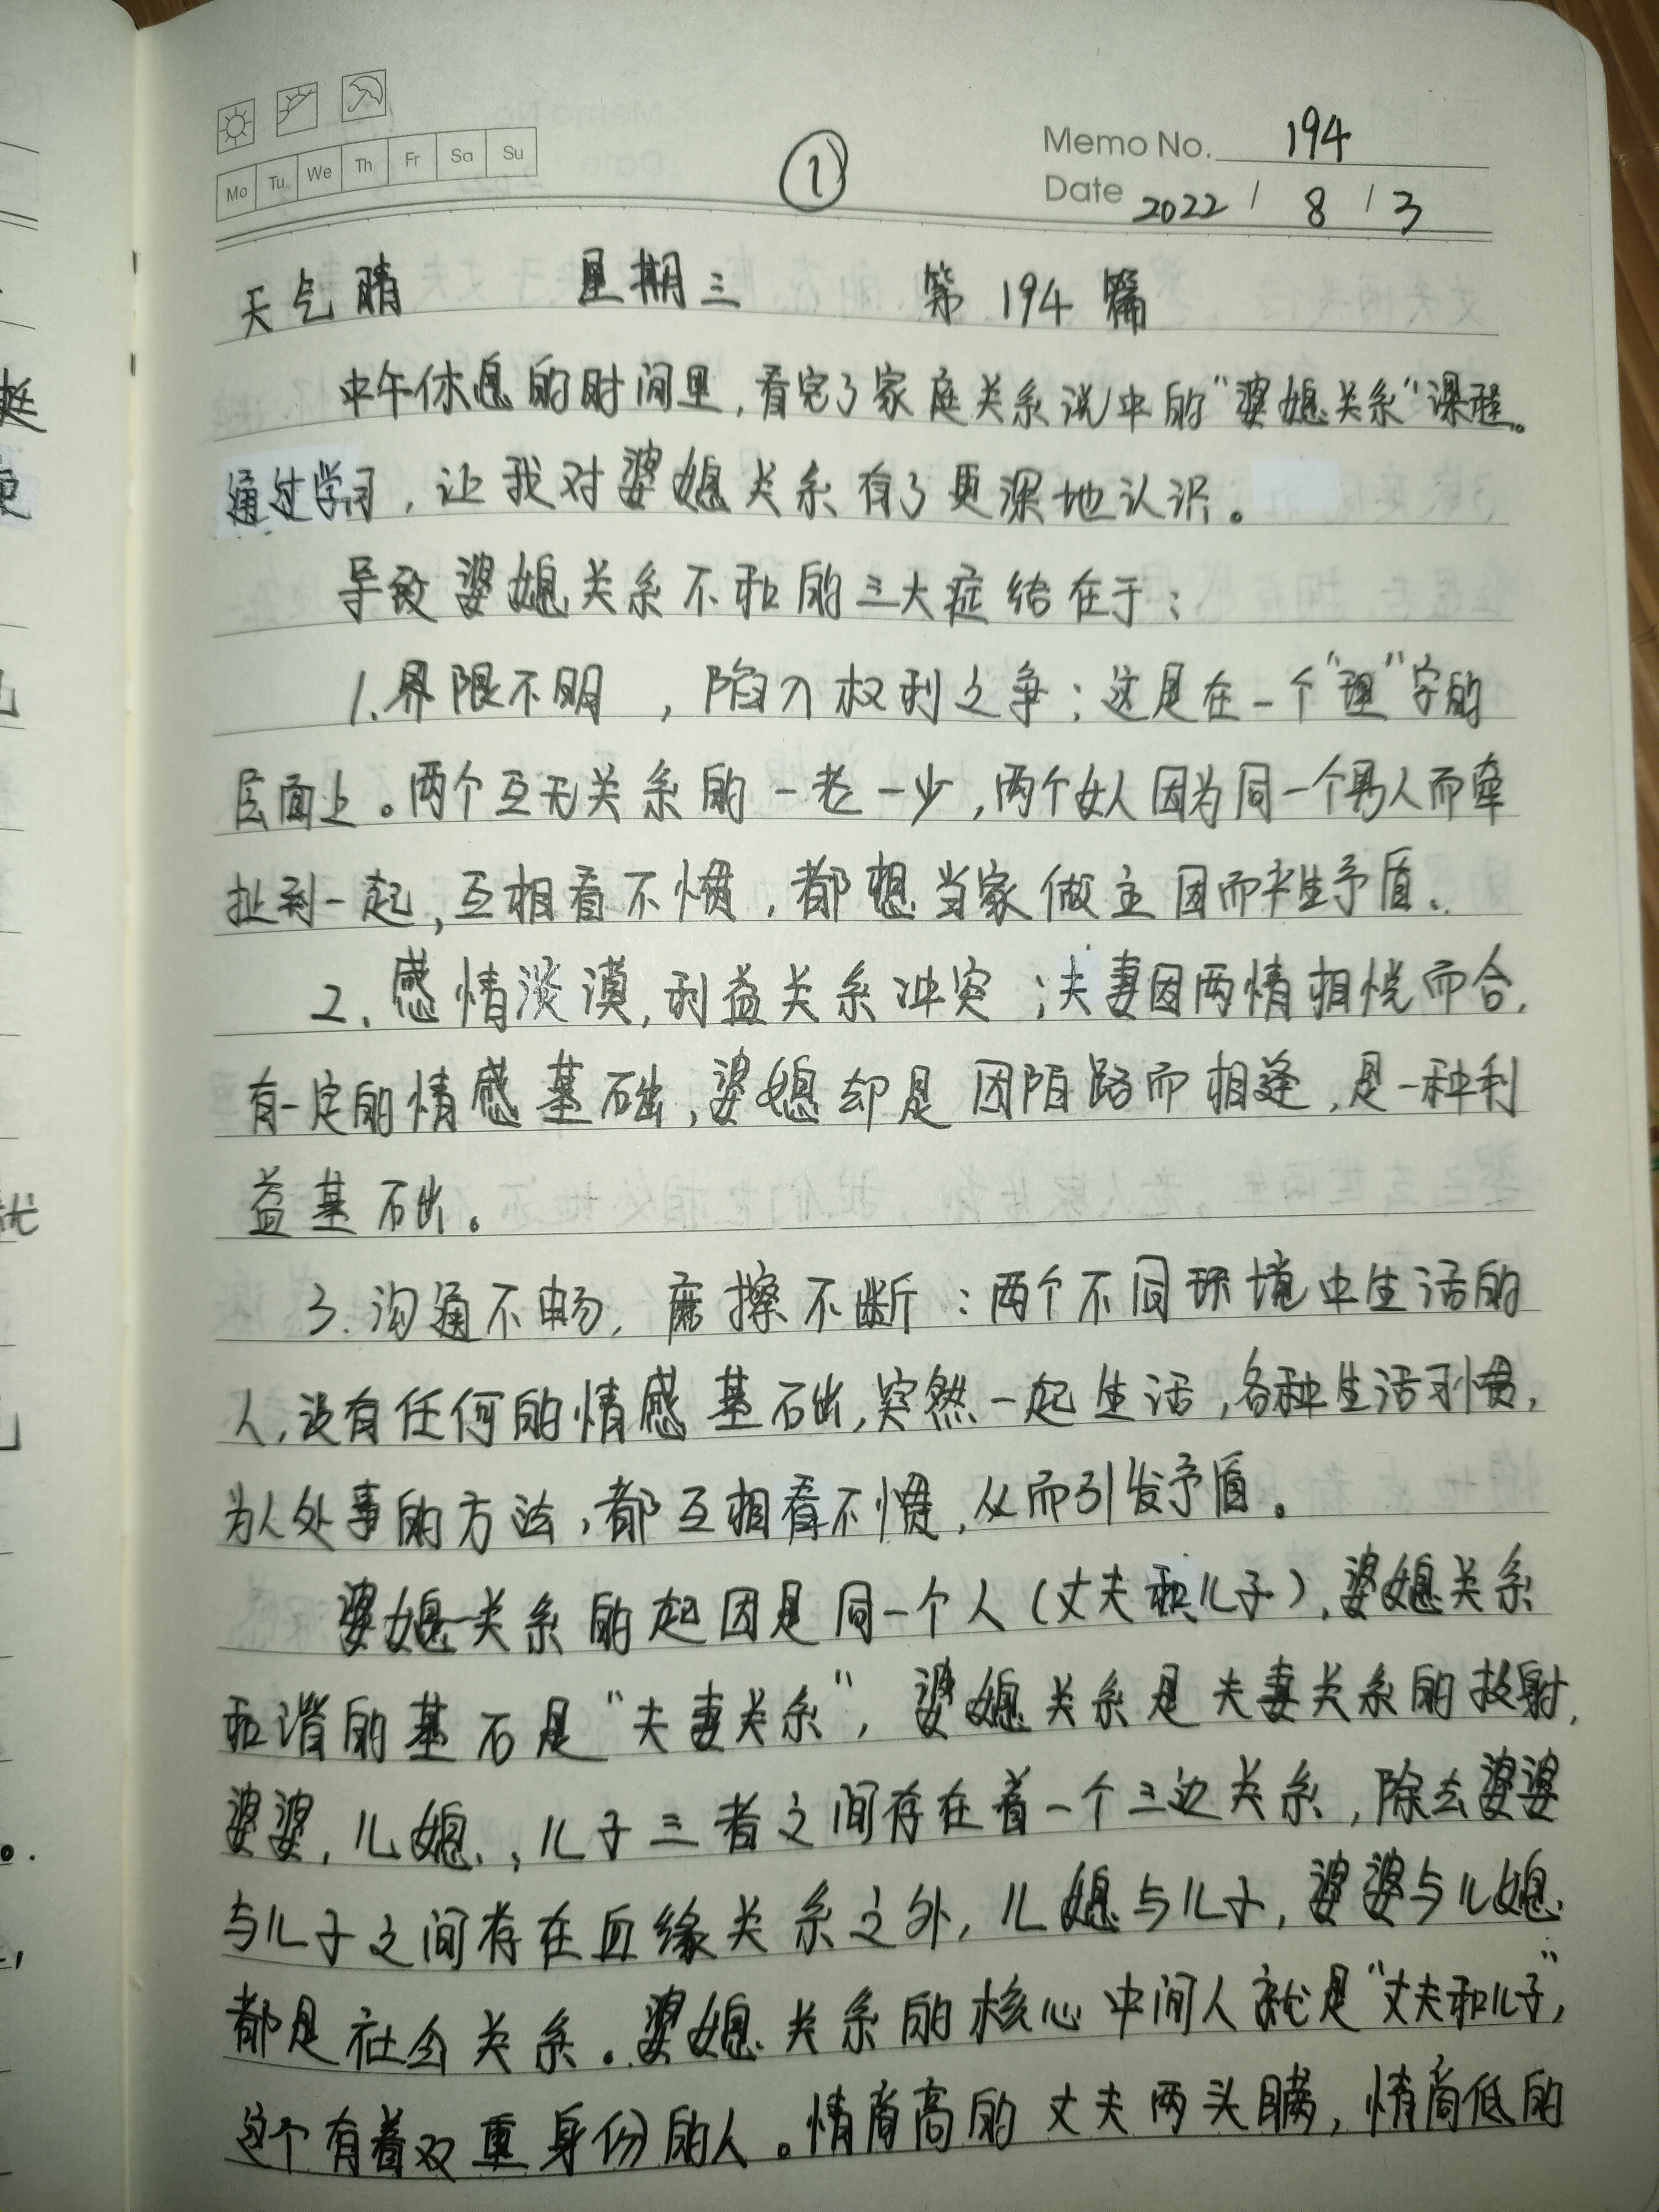 Mo Tu We Th Fr Sa Su
①
Memo No. 194
Date 2022 / 8 / 3
天气晴 星期三 第194篇
中午休息的时间里,看完了家庭关系说中的"婆媳关系"课程。
通过学习,让我对婆媳关系有了更深地认识。
导致婆媳关系不和的三大症结在于:
1.界限不明,陷入权利之争:这是在一个"理"字的
层面上。两个互无关系的一老一少,两个女人因为同一个男人而牵
扯到一起,互相看不惯,都想当家做主因而产生矛盾。
2.感情淡漠,利益关系冲突;夫妻因两情相悦而合,
有一定的情感基础,婆媳却是因陌路而相逢,是一种利
益基础。
3.沟通不畅,磨擦不断:两个不同环境中生活的
人,没有任何的情感基础,突然一起生活,各种生活习惯,
为人处事的方法,都互相看不惯,从而引发矛盾。
婆媳关系的起因是同一个人(丈夫和儿子),婆媳关系
和谐的基石是"夫妻关系",婆媳关系是夫妻关系的投射,
婆婆,儿媳,儿子三者之间存在着一个三边关系,除去婆婆
与儿子之间存在血缘关系之外,儿媳与儿子,婆婆与儿媳
都是社会关系。婆媳关系的核心中间人就是"丈夫和儿子",
这个有着双重身份的人。情商高的丈夫两头瞒,情商低的